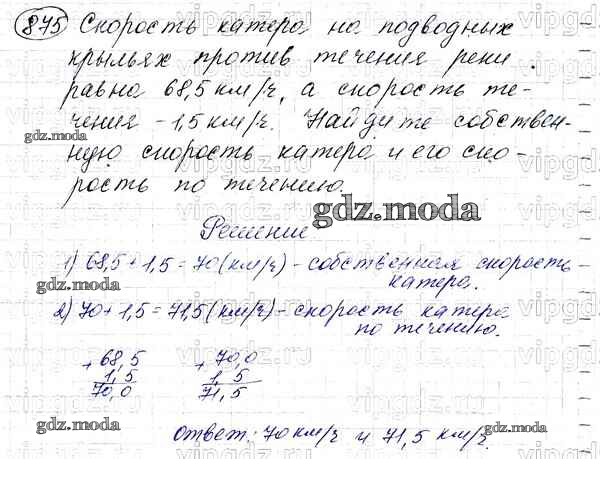 875 Скорость катера на подводных
крыльях против течения реки
равна 68,5 км/ч, а скорость те-
чения - 1,5 км/ч. Найдите собствен-
gdz.moda
ную скорость катера и его ско-
рость по течению.
gdz.moda
gdz.moda
Решение
1) 68,5 + 1,5 = 70 (км/ч) - собственная скорость
катера.
gdz.moda
2) 70 + 1,5 = 71,5 (км/ч) - скорость катера
по течению.
+ 68,5 + 70,0
1,5 1,5
70,0 71,5
gdz.moda
Ответ: 70 км/ч и 71,5 км/ч.
gdz.moda